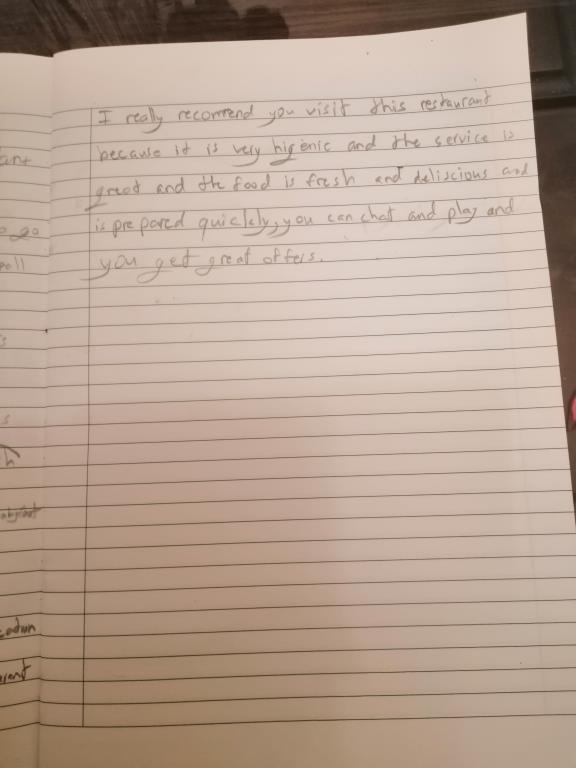 I really recommend you visit this restaurant
because it is very higenic and the service is
great and the food is fresh and deliscious and
is prepared quickly, you can chat and play and
you get great offers.